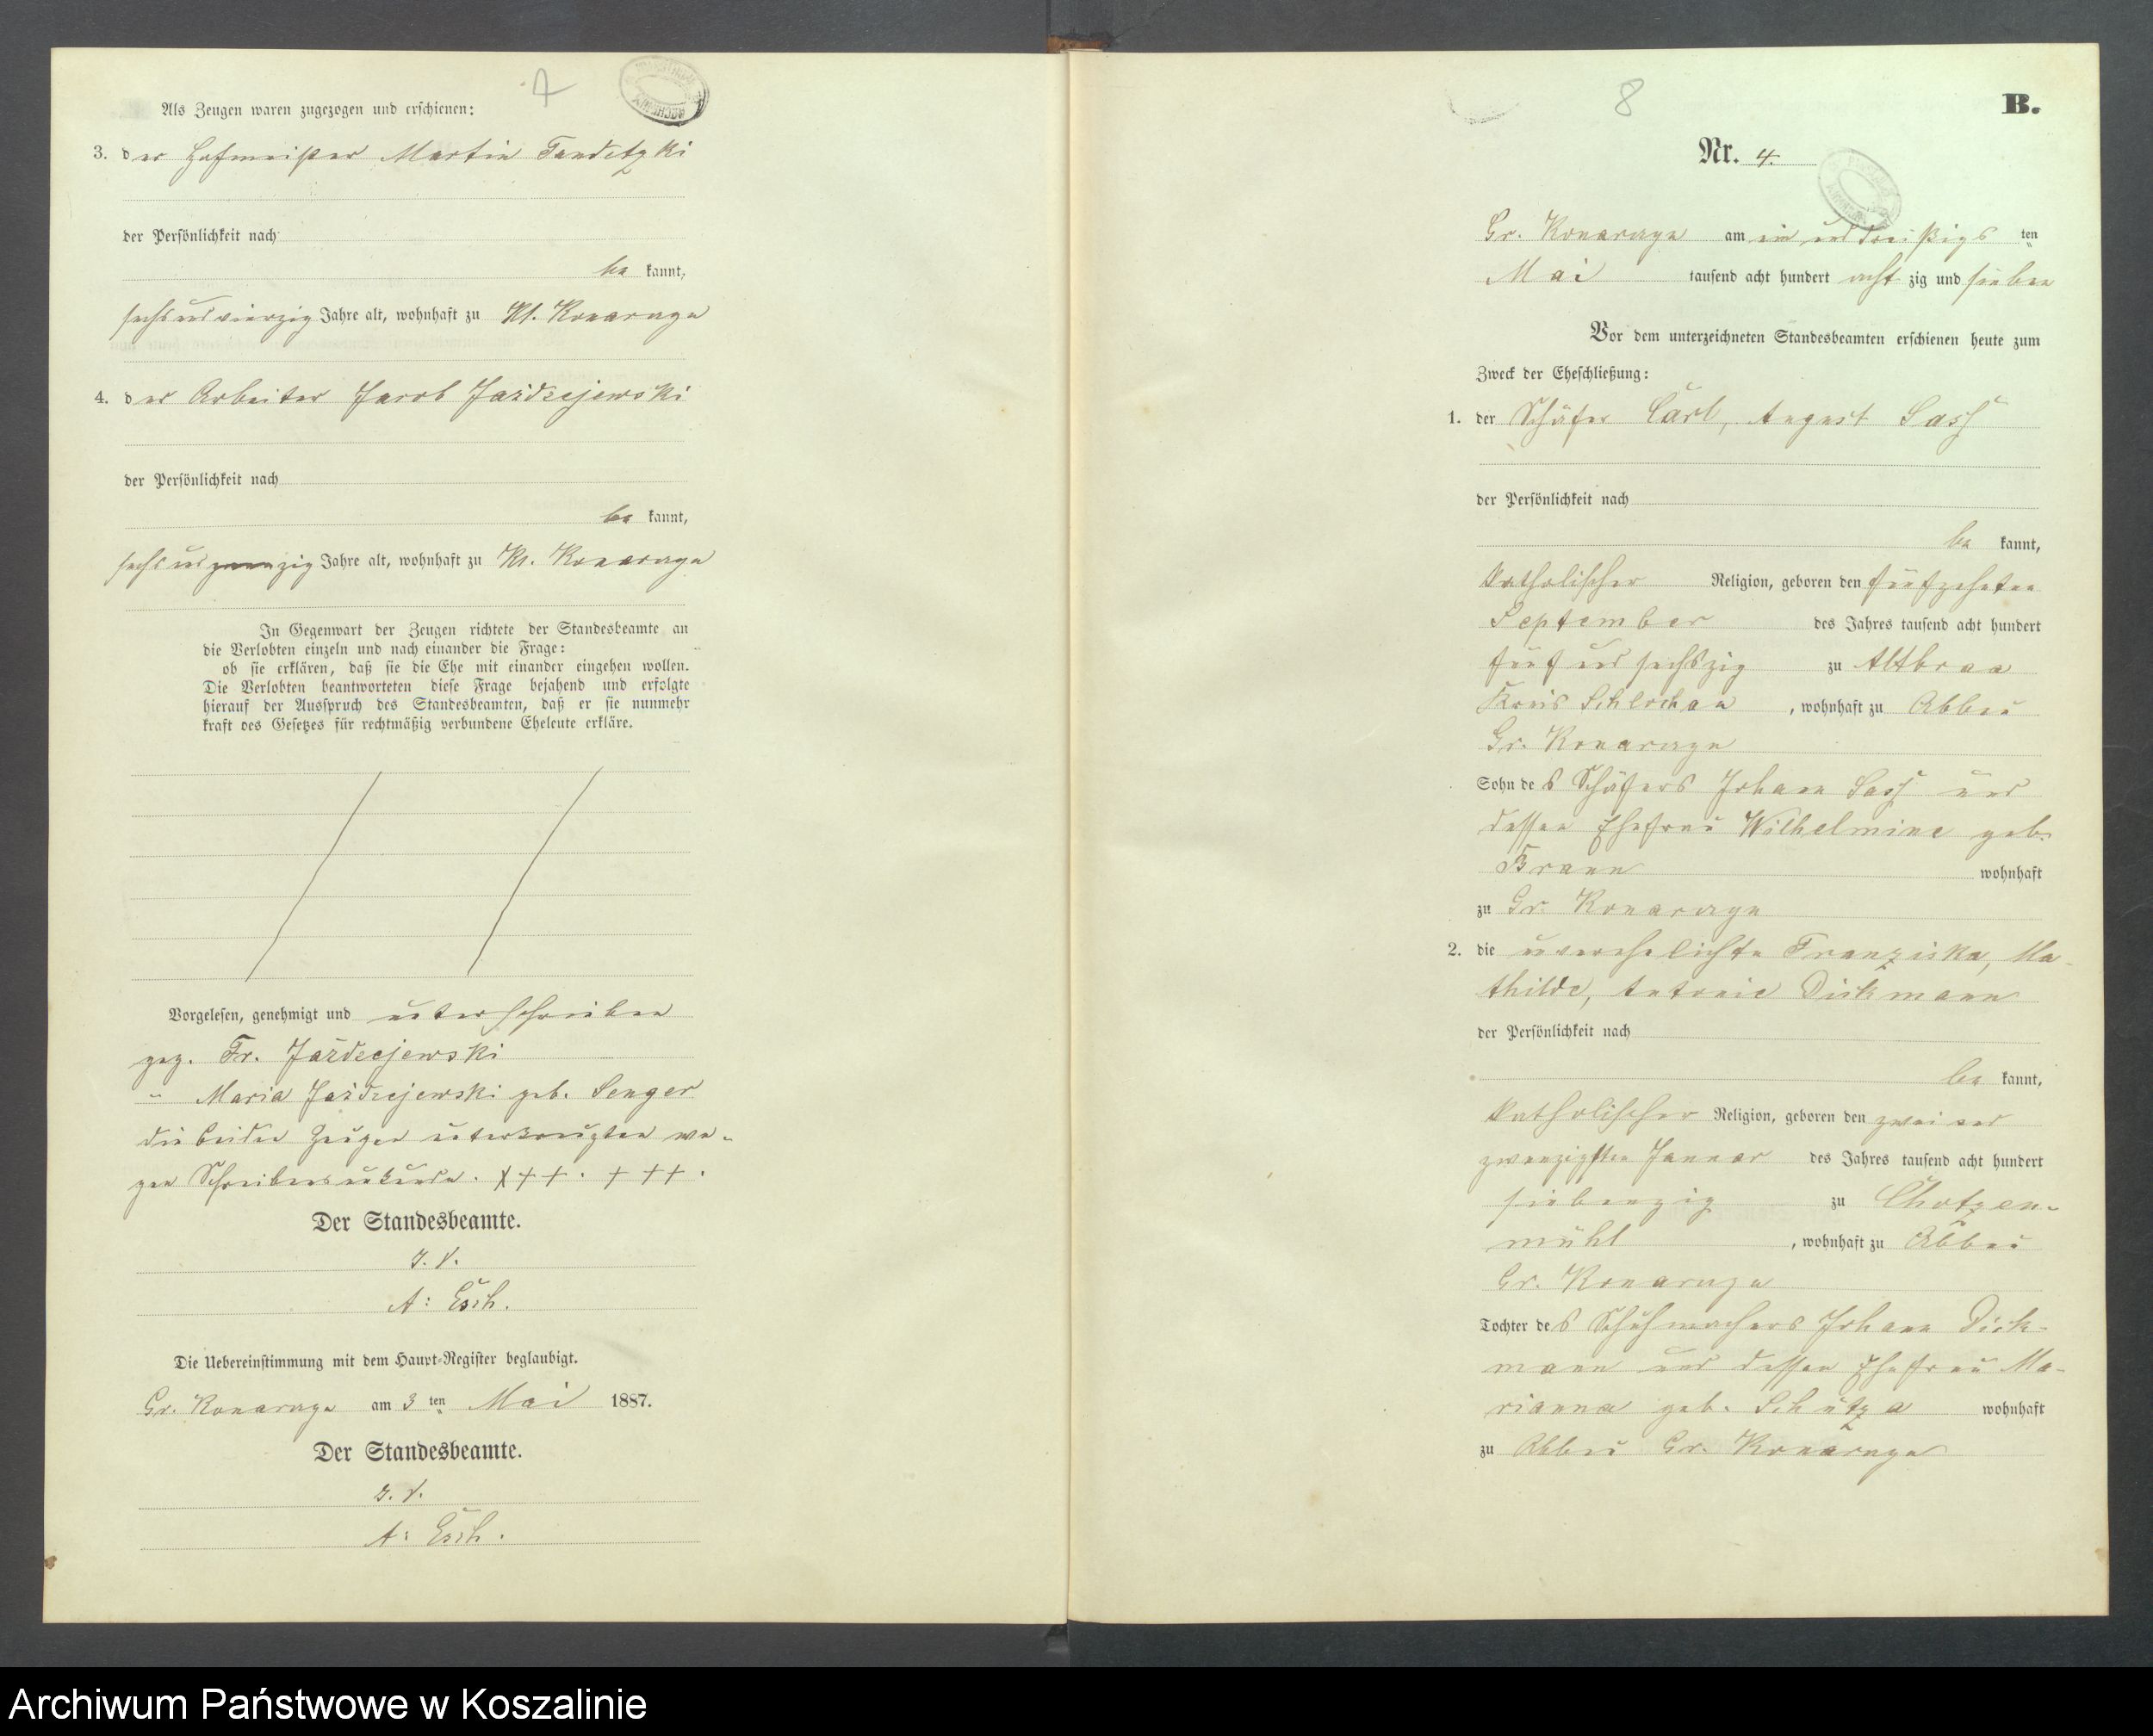 7
Als Zeugen waren zugezogen und erschienen:
3. der Hofmeister Martin Tandetzki
der Persönlichkeit nach
be kannt,
sechs und vierzig Jahre alt, wohnhaft zu Kl. Konarczyn
4. der Arbeiter Jacob Jażdzejewski
der Persönlichkeit nach
be kannt,
sechs und zwanzig Jahre alt, wohnhaft zu Kl. Konarczyn
In Gegenwart der Zeugen richtete der Standesbeamte an
die Verlobten einzeln und nach einander die Frage:
ob sie erklären, daß sie die Ehe mit einander eingehen wollen.
Die Verlobten beantworteten diese Frage bejahend und erfolgte
hierauf der Ausspruch des Standesbeamten, daß er sie nunmehr
kraft des Gesetzes für rechtmäßig verbundene Eheleute erkläre.
Vorgelesen, genehmigt und unterschrieben
gez. Fr. Jażdzejewski
" Maria Jażdzejewski geb. Senger
die beiden Zeugen unterkreuzten we-
gen Schreibensunkunde. +++. +++.
Der Standesbeamte.
I. V.
A: Esch.
Die Uebereinstimmung mit dem Haupt-Register beglaubigt.
Gr. Konarczyn am 3 ten Mai 1887.
Der Standesbeamte.
I. V.
A: Esch.
8
B.
Nr. 4.
Gr. Konarczyn am ein und dreißigs ten
Mai tausend acht hundert acht zig und sieben
Vor dem unterzeichneten Standesbeamten erschienen heute zum
Zweck der Eheschließung:
1. der Schäfer Carl, August Sass
der Persönlichkeit nach
be kannt,
katholischer Religion, geboren den fünfzehnten
September des Jahres tausend acht hundert
fünf und sechszig zu Altbraa
Kreis Schlochau, wohnhaft zu Abbau
Gr. Konarczyn
Sohn des Schäfers Johann Sass und
dessen Ehefrau Wilhelmine geb.
Braun wohnhaft
zu Gr. Konarczyn
2. die unverehelichte Franziska, Ma-
thilde, Antonie Dickmann
der Persönlichkeit nach
be kannt,
katholischer Religion, geboren den zwei und
zwanzigsten Januar des Jahres tausend acht hundert
siebenzig zu Chotzen-
mühl, wohnhaft zu Abbau
Gr. Konarczyn
Tochter des Schuhmachers Johann Dick-
mann und dessen Ehefrau Ma-
rianna geb. Schütza wohnhaft
zu Abbau Gr. Konarczyn
Archiwum Państwowe w Koszalinie